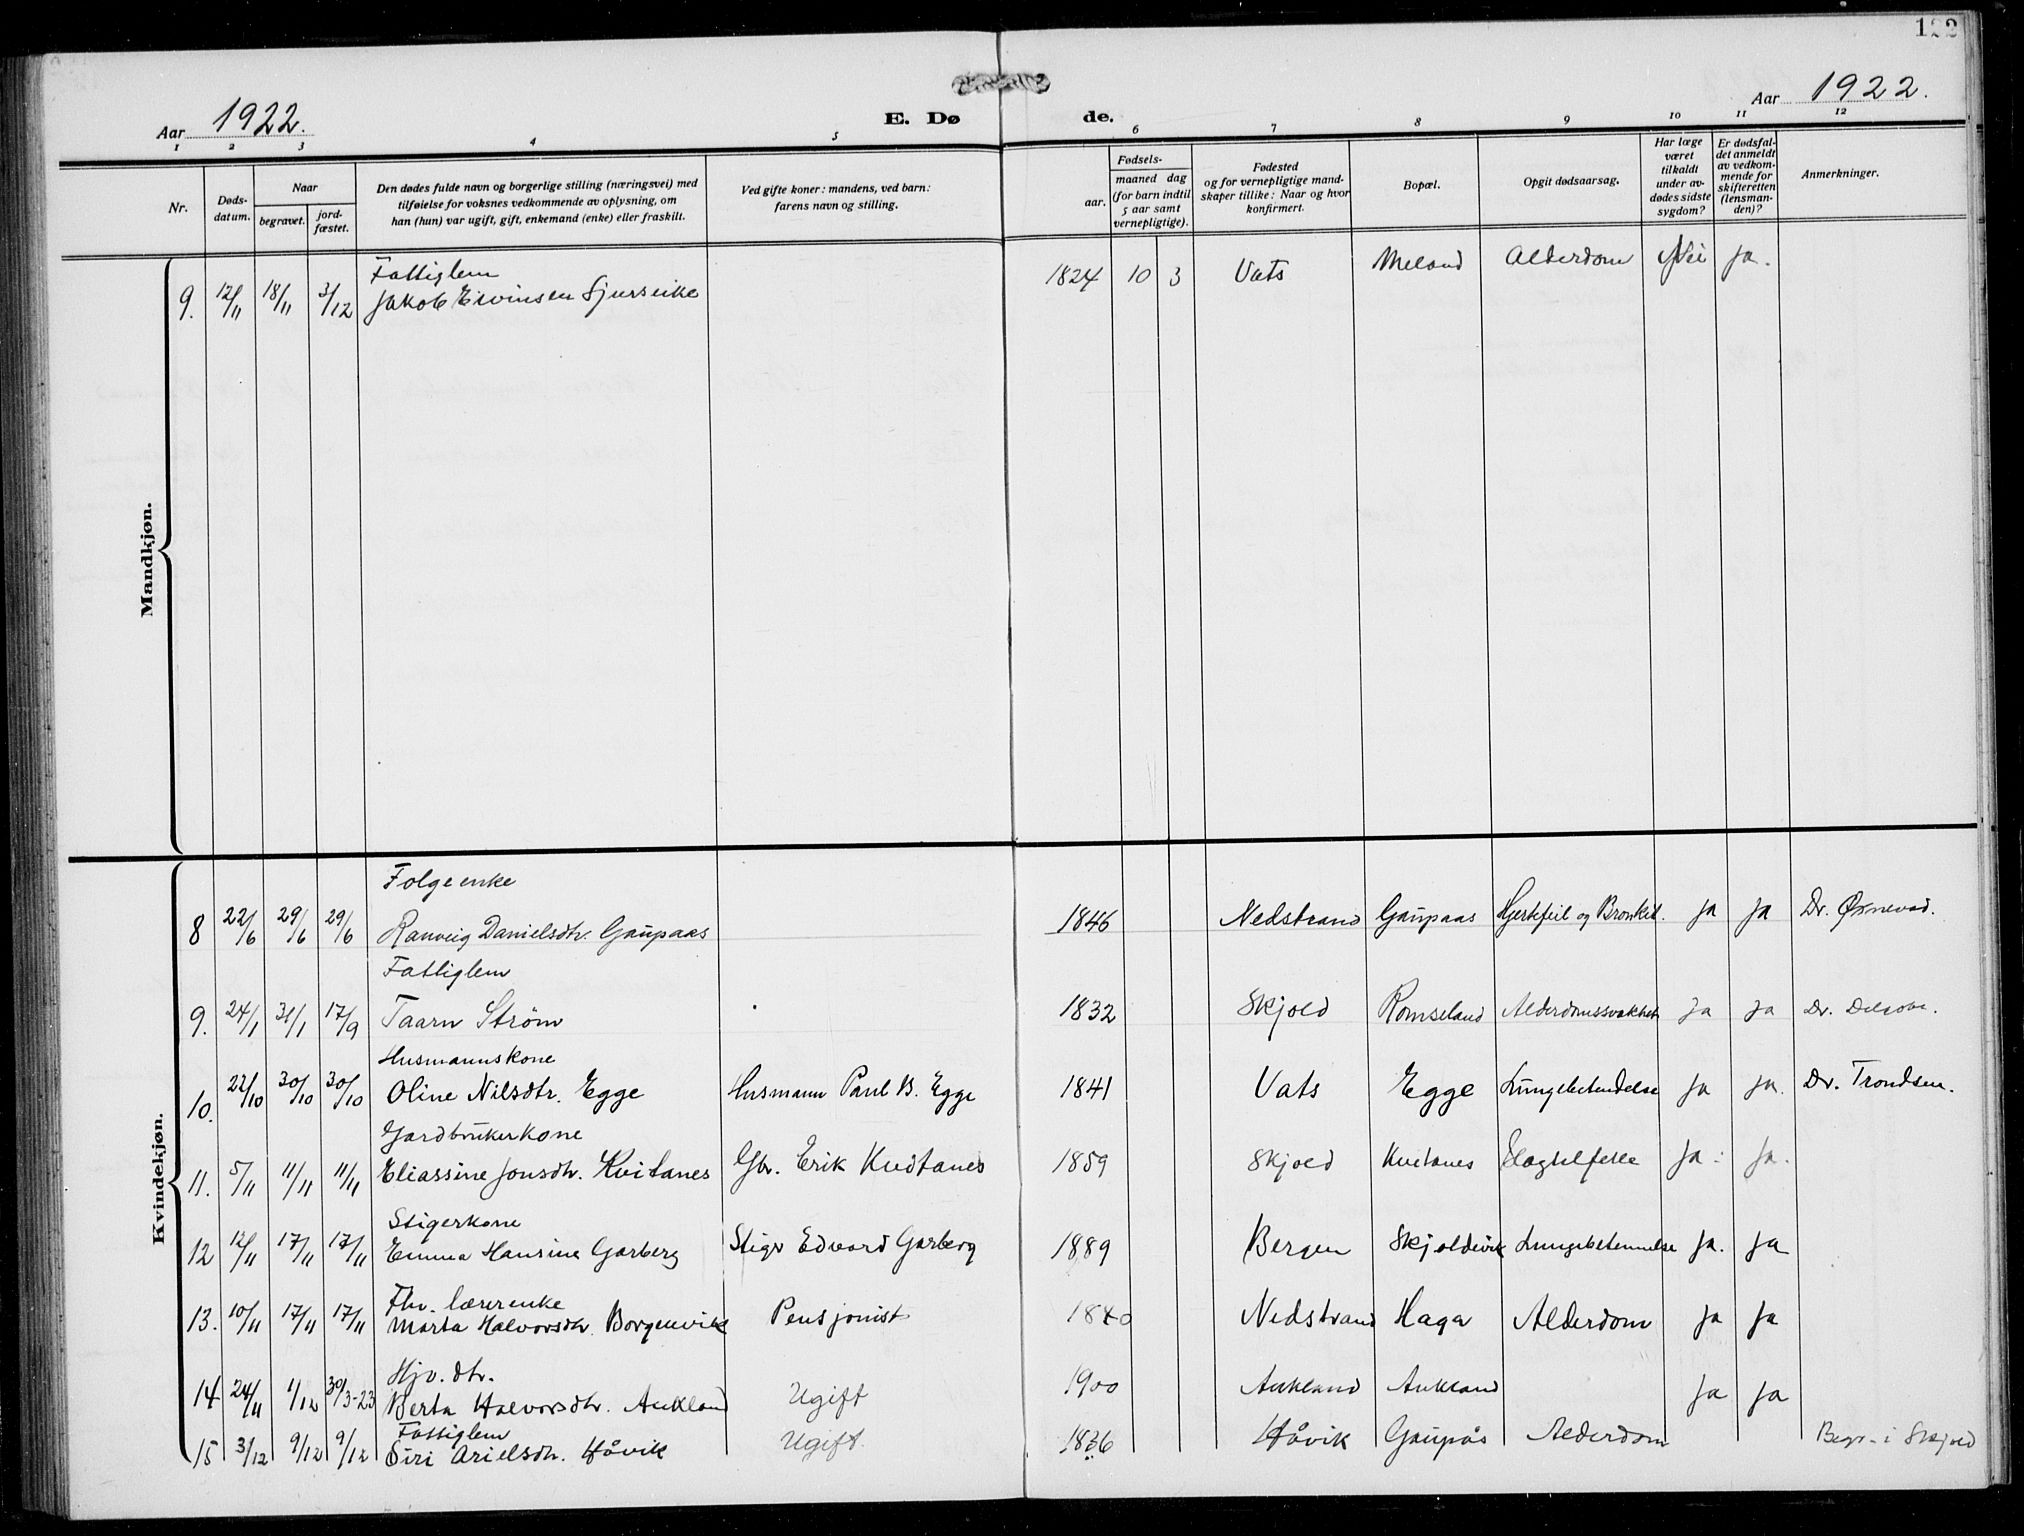 122
Aar 1922.
E. Dø de.
Aar 1922.
1 2 3 4 5 6 7 8 9 10 11 12
Nr.
Døds-
datum.
Naar
begravet.
jord-
fæstet.
Den dødes fulde navn og borgerlige stilling (næringsvei) med
tilføielse for voksnes vedkommende av oplysning, om
han (hun) var ugift, gift, enkemand (enke) eller fraskilt.
Ved gifte koner: mandens, ved barn:
farens navn og stilling.
Fødsels-
aar.
maaned dag
(for barn indtil
5 aar samt
vernepligtige).
Fødested
og for vernepligtige mand-
skaper tillike: Naar og hvor
konfirmert.
Bopæl.
Opgit dødsaarsag.
Har læge
været
tilkaldt
under av-
dødes sidste
sygdom?
Er dødsfal-
det anmeldt
av vedkom-
mende for
skifteretten
(lensman-
den)?
Anmerkninger.
Mandkjøn.
Fattiglem
9. 12/11 18/11 3/12 Jakob Eivinsen Sjurseike 1824 10 3 Vats Meland Alderdom Nei Ja.
Kvindekjøn.
Folgeenke
8 22/6 29/6 29/6 Ranveig Danielsdtr. Gaupaas 1846 Nedstrand Gaupaas Hjertefeil og Bronkit. Ja Ja Dr. Øxnevad.
Fattiglem
9. 24/1 31/1 17/9 Taarn Strøm 1832 Skjold Romseland Alderdomssvakhet Ja Ja Dr.
Husmannskone
10. 22/10 30/10 30/10 Oline Nilsdtr. Egge Husmann Paul B. Egge 1841 Vats Egge Lungebetendelse Ja Ja. Dr. Trondsen.
Gardbrukerkone
11. 5/11 11/11 11/11 Eliassine Jonsdtr. Kvitanes Gbr. Erik Kvitanes 1859 Skjold Kvitanes Slagtilfelle Ja. Ja.
Stigerkone
12 12/11 17/11 17/11 Emma Hansine Garberg Stiger Edvard Garberg 1889 Bergen Skjoldevik Lungebetennelse Ja. Ja
Fhv. lærerenke
13. 10/11 17/11 17/11 Marta Halvorsdtr. Borgenvik Pensjonist 1840 Nedstrand Haga Alderdom Ja Ja
Hjv. dtr.
14 24/11 1/12 30/3-23 Berta Halvorsdtr. Aukland Ugift 1900 Aukland Aukland Ja Ja
Fattiglem
15 3/12 9/12 9/12 Siri Arielsdtr. Håvik Ugift. 1836 Håvik Gaupås Alderdom Begr. i Skjold